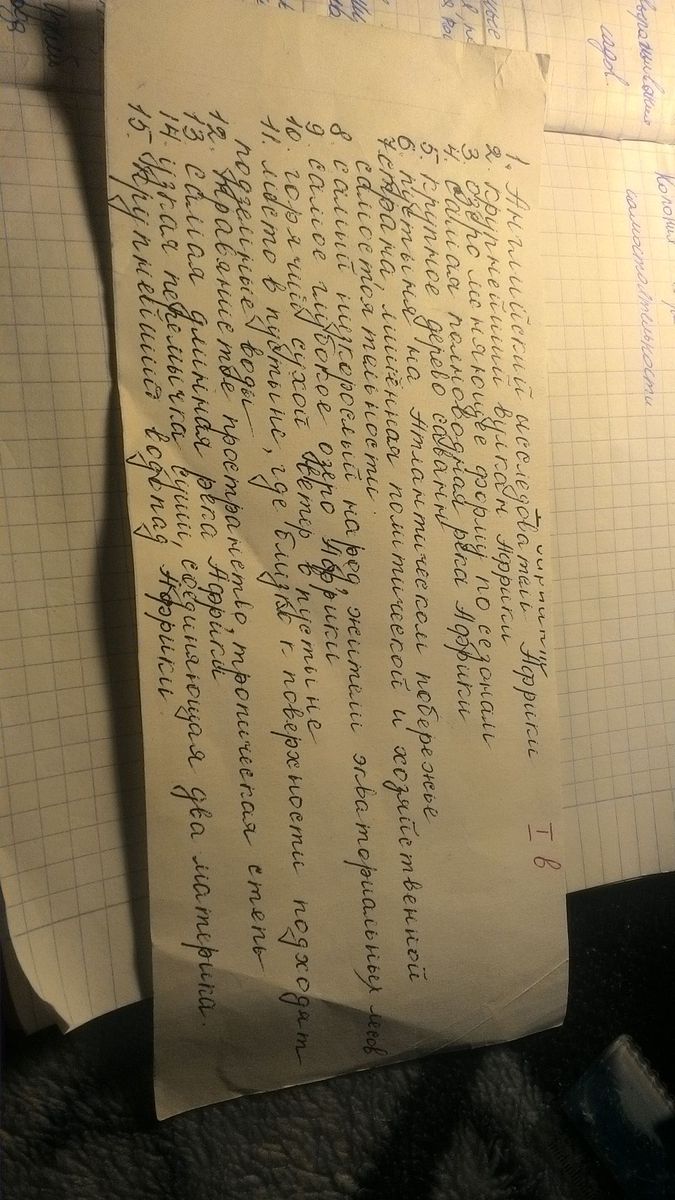 I в
1. Английский исследователь Африки
2. крупнейший вулкан Африки
3 озеро меняющее форму по сезонам
4. самая полноводная река Африки
5. крупное дерево саванн
6. пустыня на Атлантическом побережье
7. страна, лишённая политической и хозяйственной
самостоятельности.
8. самый низкорослый народ, жители экваториальных лесов
9 самое глубокое озеро Африки
10. горячий сухой ветер в пустыне
11. место в пустыне, где близко к поверхности подходят
подземные воды
12. травянистое пространство, тропическая степь
13 самая длинная река Африки
14. узкая перемычка суши, соединяющая два материка.
15. Крупнейший водопад Африки
выращивания
садов.
Колония
самостоятельности